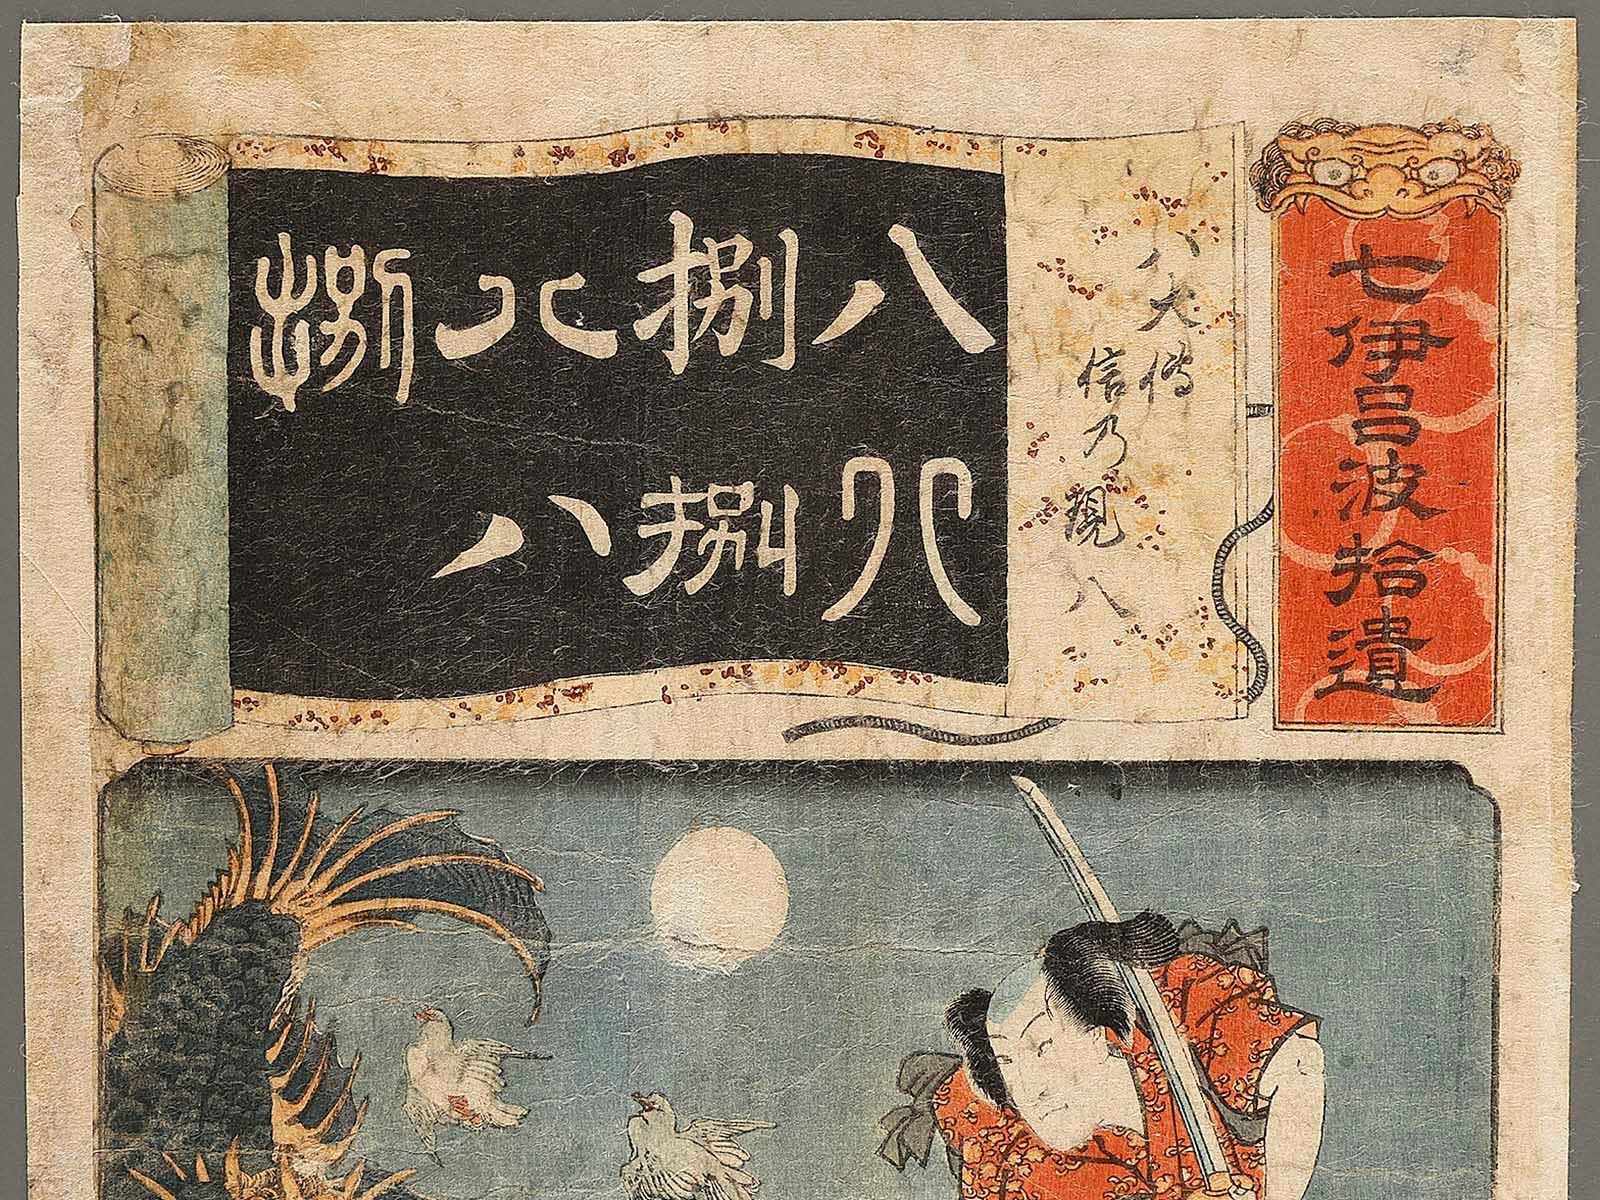 七伊呂波拾遺
八犬傳
信乃 現八
八 捌 八 捌
八 捌 八